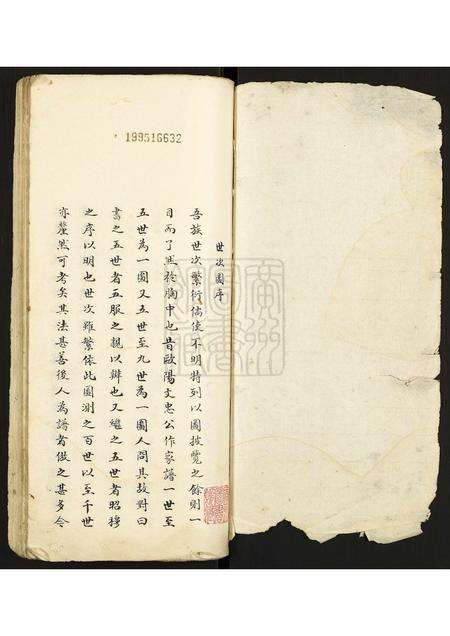 199516632
世次圖序
吾族世次繁衍倘使不明特列以圖披覽之餘則一
目而了然於胸中也昔歐陽文忠公作家譜一世至
五世為一圖又五世至九世為一圖人問其故對曰
書之五世者五服之親以辯也又繼之五世者昭穆
之序以明也世次雖繁依此圖測之百世以至千世
亦釐然可考矣其法甚善後人為譜者倣之甚多今